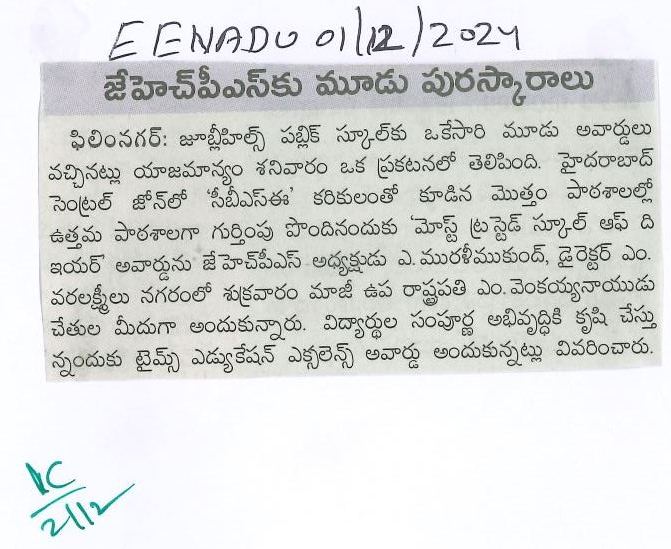 EENADU 01/12/2024
జేహెచ్‌పీఎస్‌కు మూడు పురస్కారాలు
ఫిలింనగర్: జూబ్లీహిల్స్ పబ్లిక్ స్కూల్‌కు ఒకేసారి మూడు అవార్డులు
వచ్చినట్లు యాజమాన్యం శనివారం ఒక ప్రకటనలో తెలిపింది. హైదరాబాద్
సెంట్రల్ జోన్‌లో ‘సీబీఎస్ఈ’ కరికులంతో కూడిన మొత్తం పాఠశాలల్లో
ఉత్తమ పాఠశాలగా గుర్తింపు పొందినందుకు ‘మోస్ట్ ట్రస్టెడ్ స్కూల్ ఆఫ్ ది
ఇయర్’ అవార్డును జేహెచ్‌పీఎస్ అధ్యక్షుడు ఎ.మురళీముకుంద్, డైరెక్టర్ ఎం.
వరలక్ష్మీలు నగరంలో శుక్రవారం మాజీ ఉప రాష్ట్రపతి ఎం.వెంకయ్యనాయుడు
చేతుల మీదుగా అందుకున్నారు. విద్యార్థుల సంపూర్ణ అభివృద్ధికి కృషి చేస్తు
న్నందుకు టైమ్స్ ఎడ్యుకేషన్ ఎక్సలెన్స్ అవార్డు అందుకున్నట్లు వివరించారు.
2/12